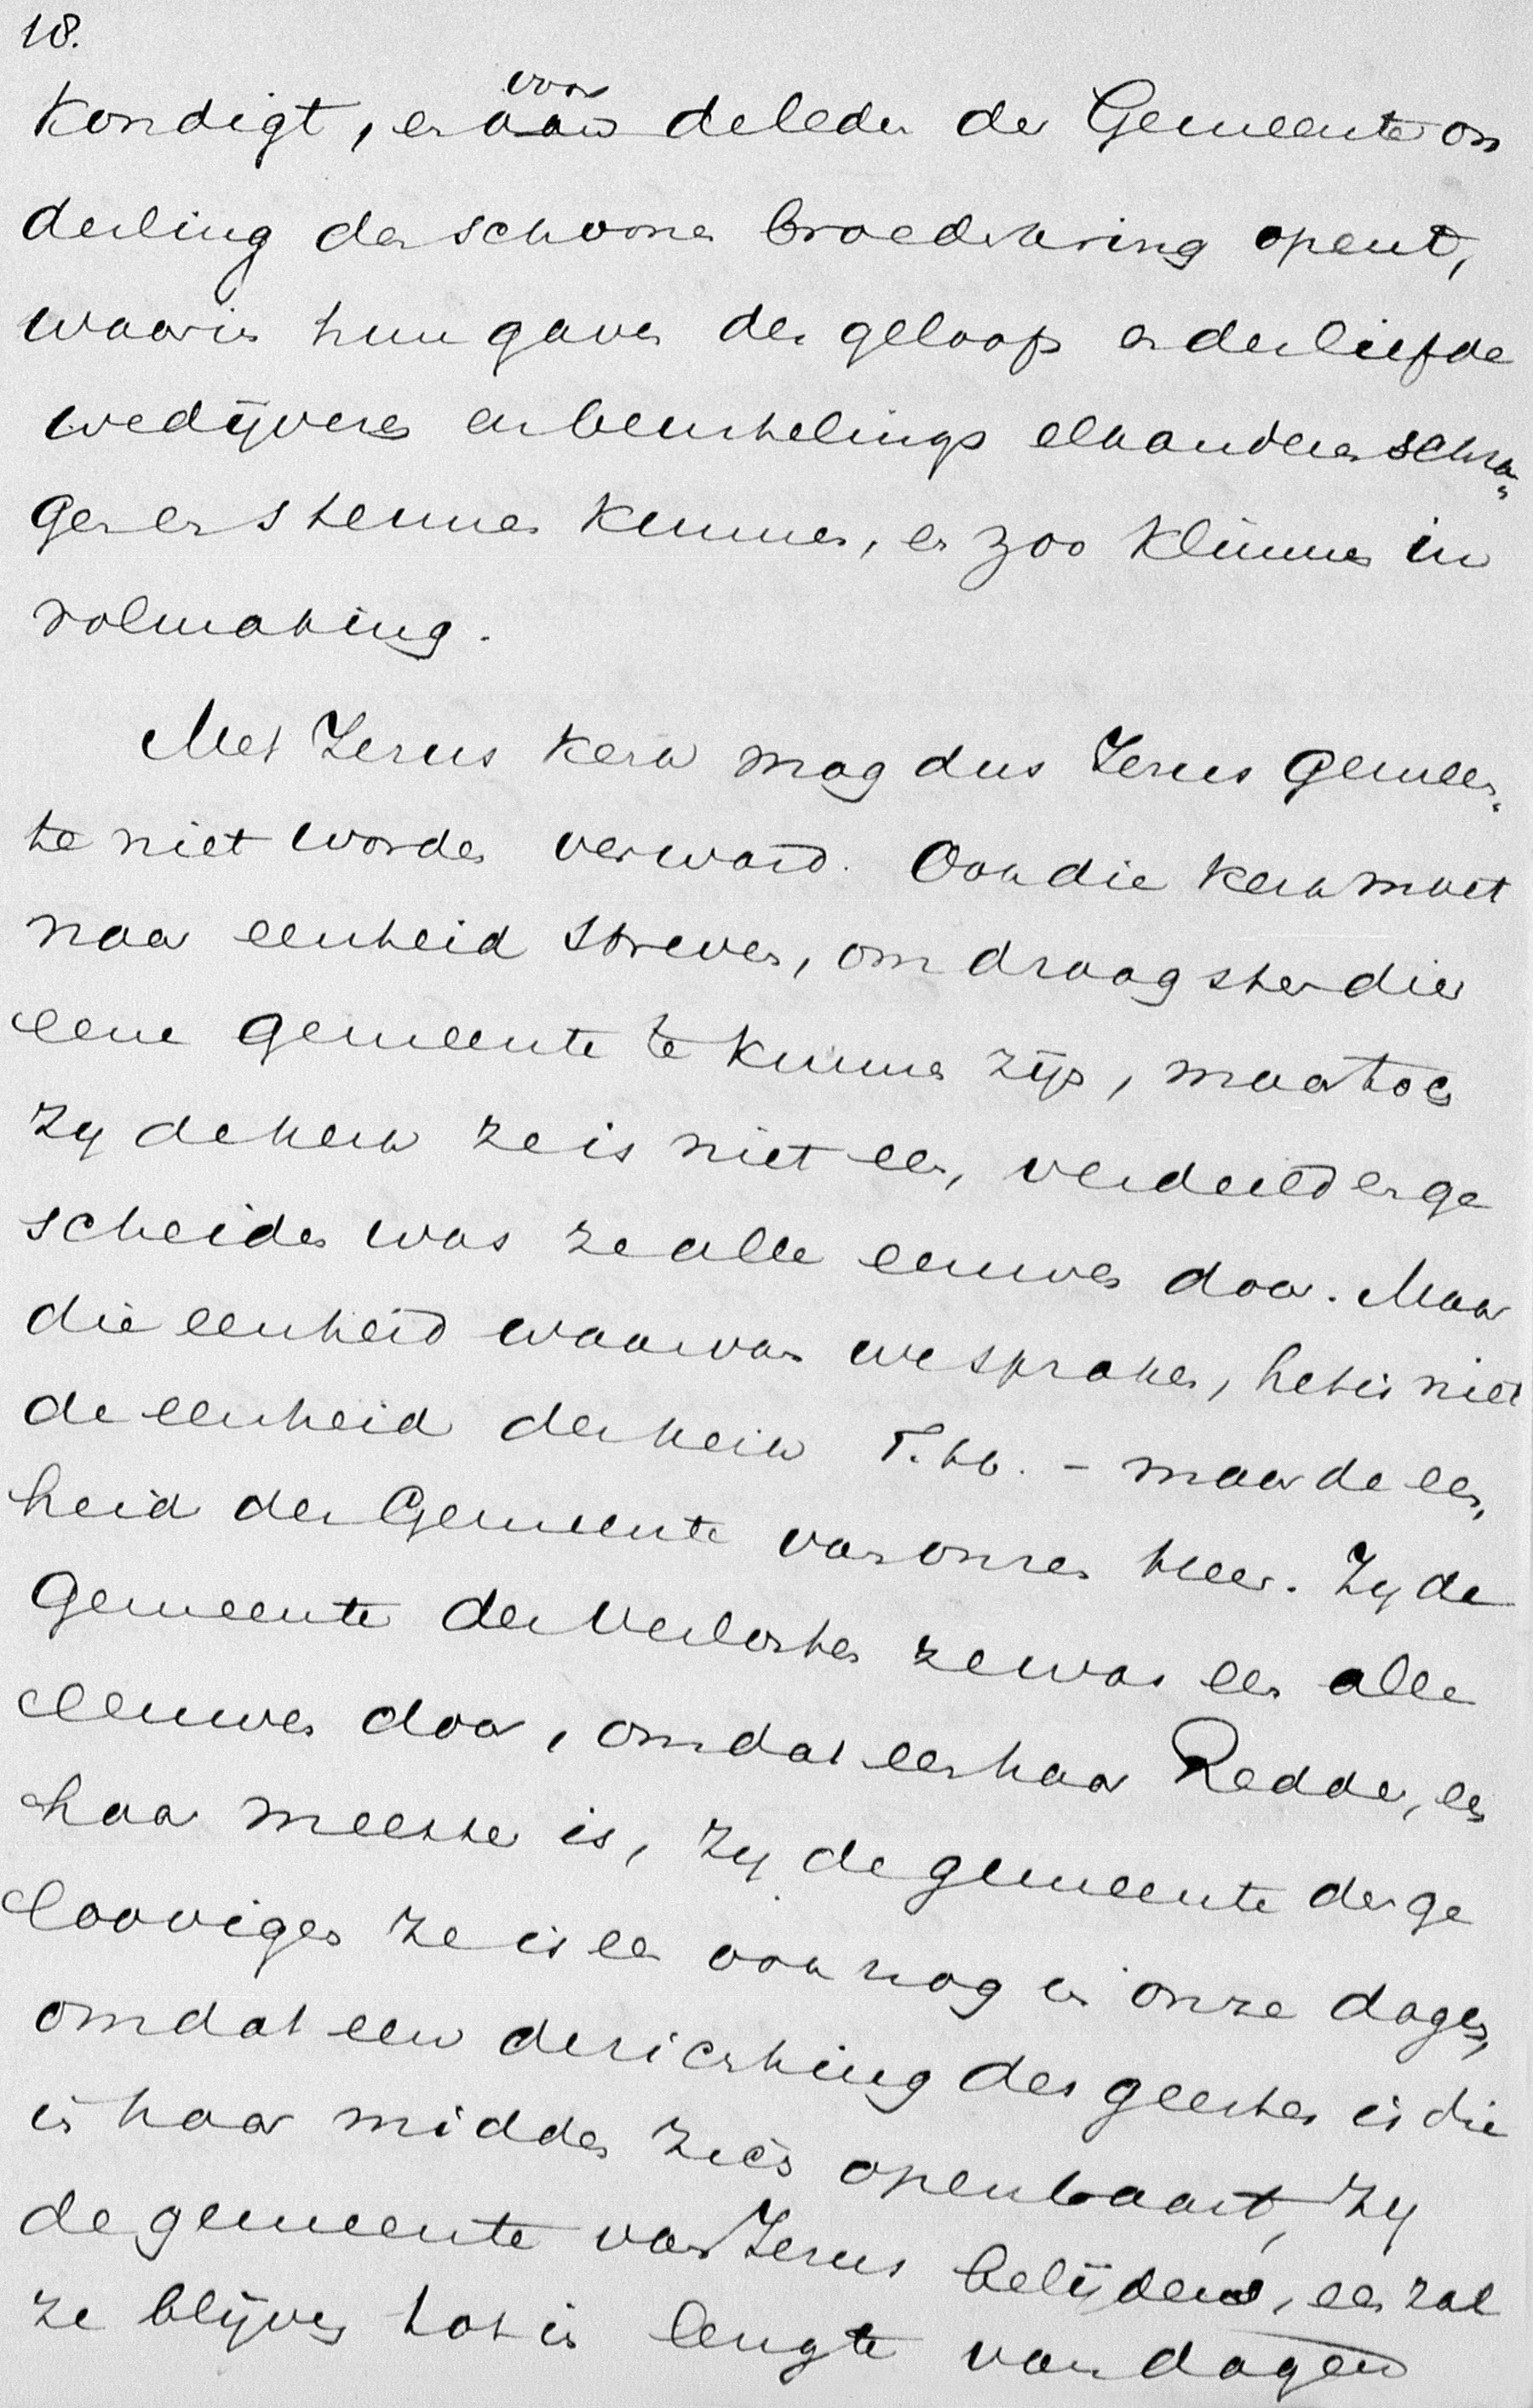 18.
kondigt, en voor de leden der Gemeente on
derling den schoonen broederkring opent,
waarin hun gaven des geloofs en der liefde
wedijveren en beurtelings elkanderen schra„
gen en steunen kunnen, en zoo klimmen in
volmaking.
Met Jezus kerk mag dus Jezus gemeen„
te niet worden verward. Ook die kerk moet
naar eenheid streven, om draagster dier
eene gemeente te kunnen zijn, maar toch
zy de kerk ze is niet een, verdeeld en ge
scheiden was ze alle eeuwen door. Maar
die eenheid waarvan we spraken, het is niet
de eenheid der kerk T. hb. - maar de een„
heid der Gemeente van onzen heer. Zy de
Gemeente der Verlosten ze was een alle
eeuwen door, omdat een haar Redder, een
haar meester is, zy de gemeente der ge
loovigen ze is een ook nog in onze dagen,
omdat een de richting des geestes is die
in haar midden zich openbaart, zy
de gemeente van Jezus belijders, een zal
ze blijven tot in lengte van dagen